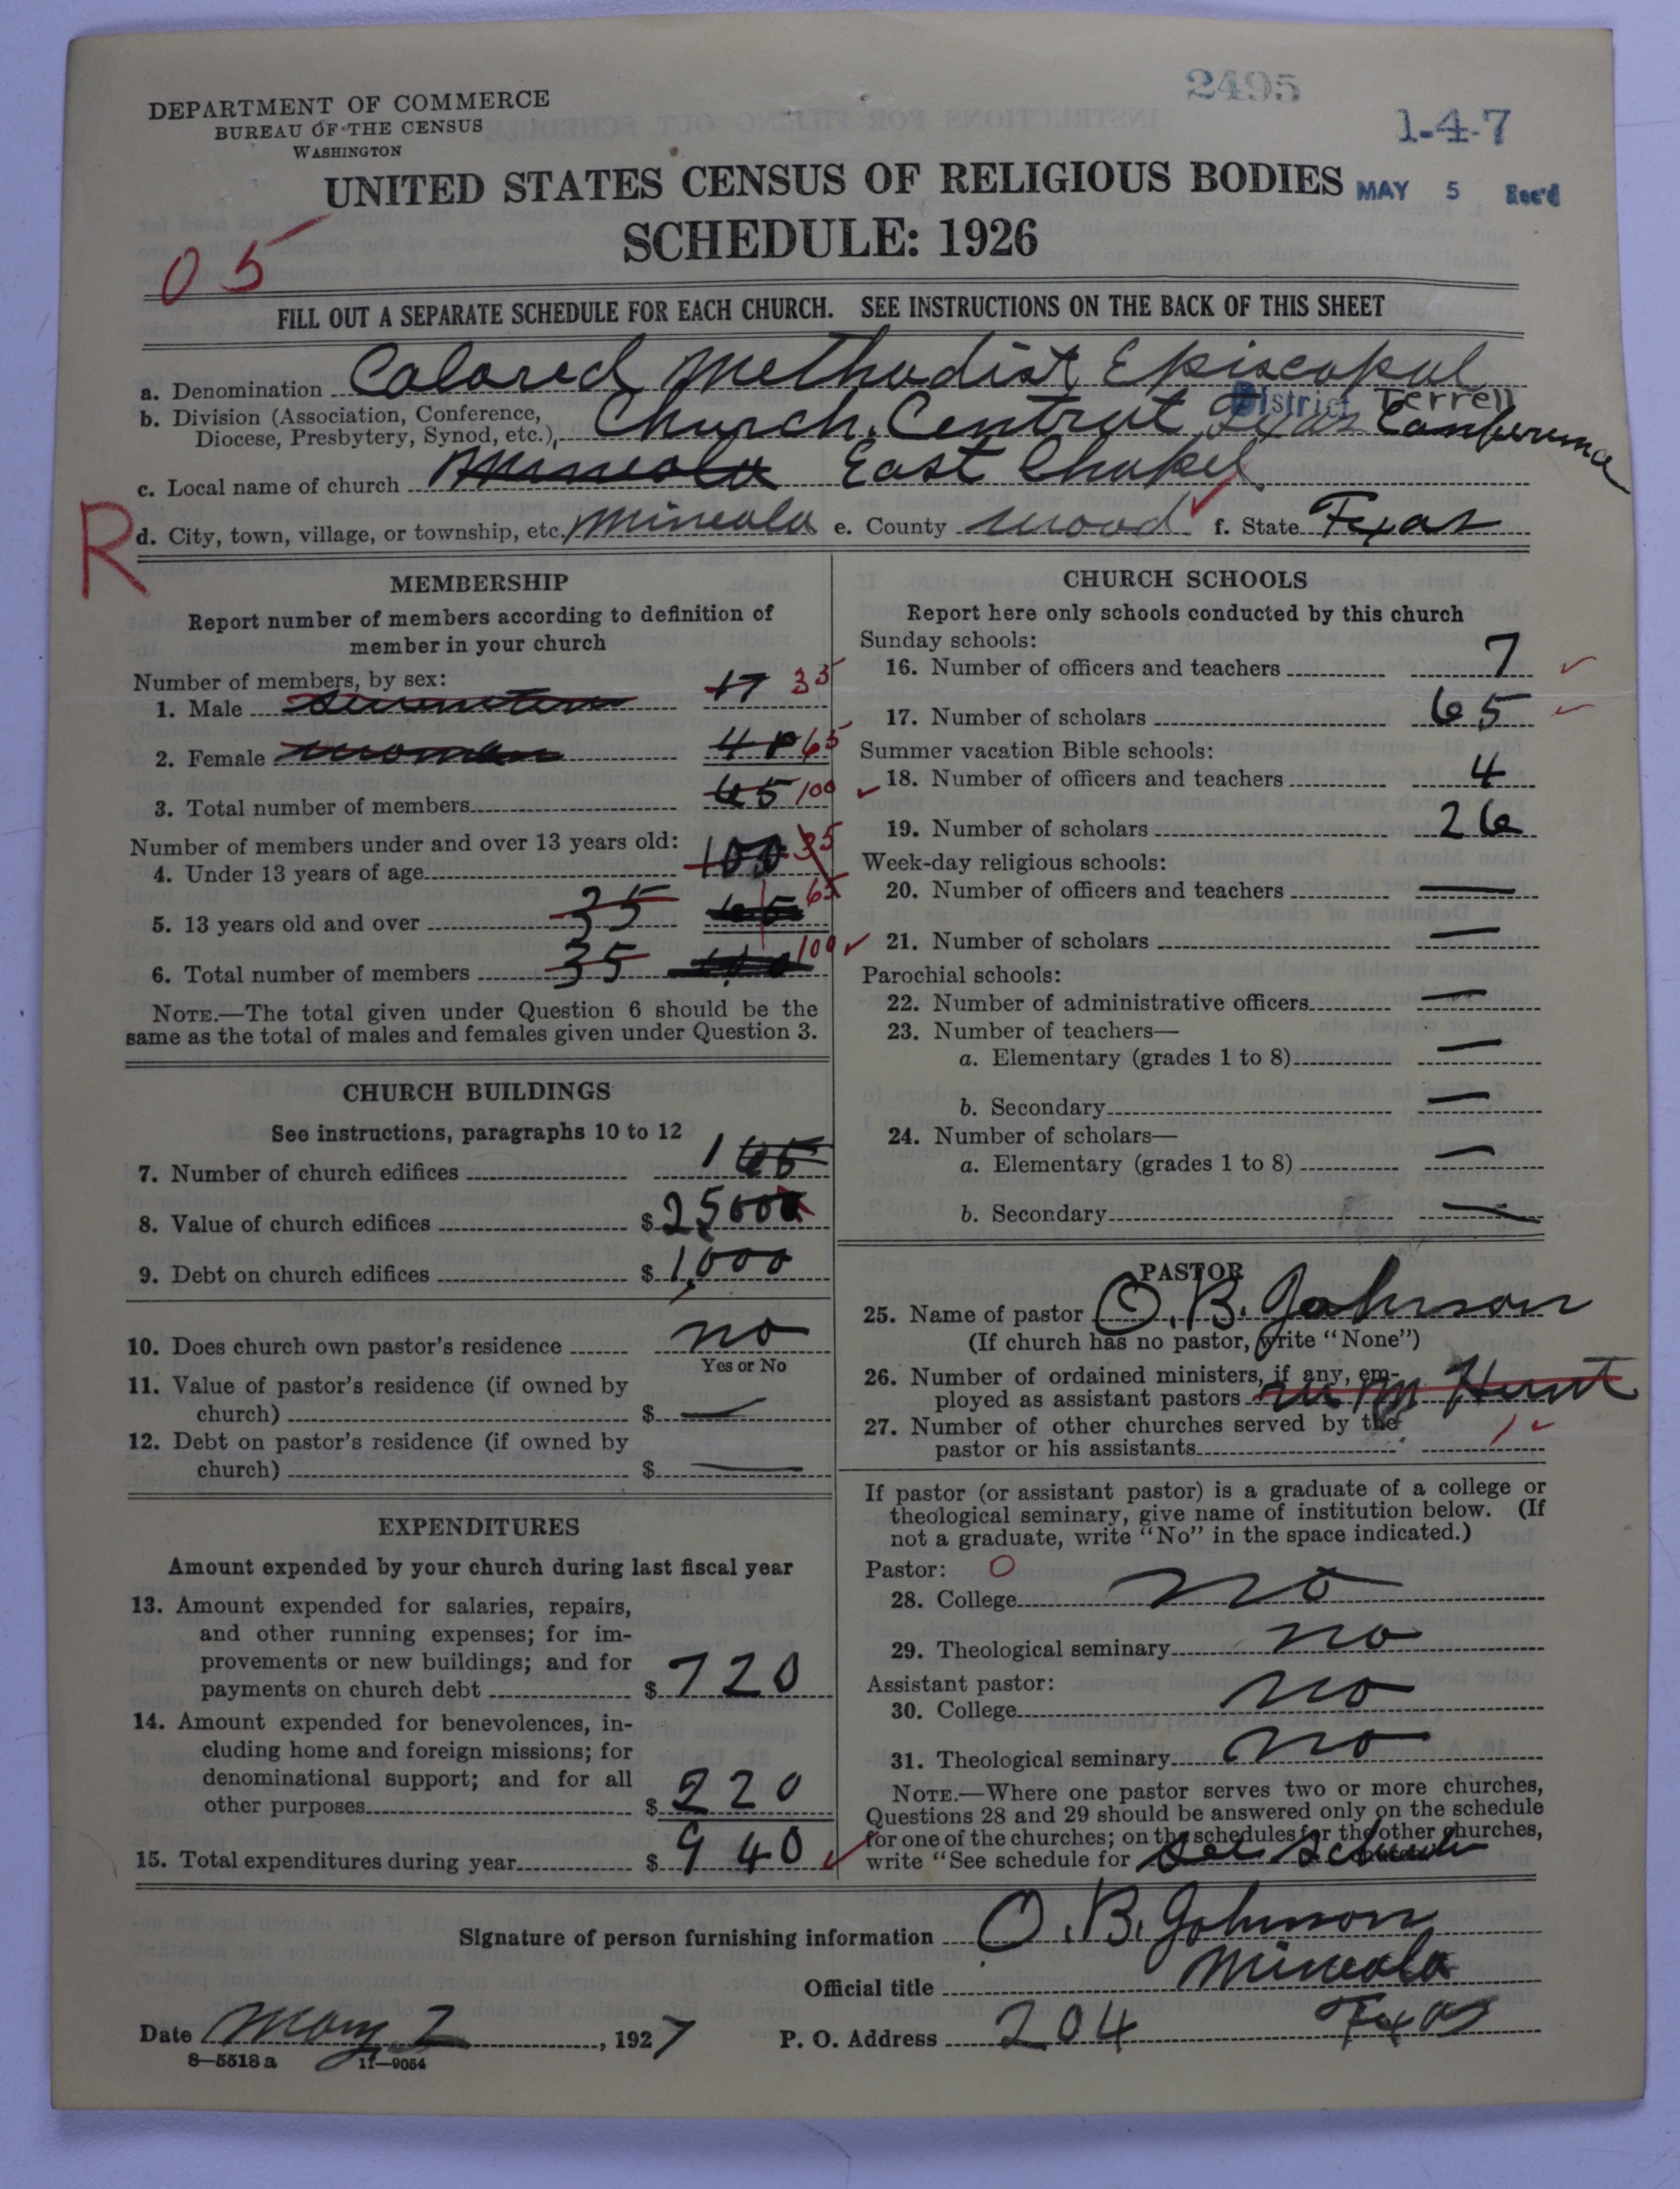 2495
DEPARTMENT OF COMMERCE
BUREAU OF THE CENSUS
WASHINGTON
1-4-7
UNITED STATES CENSUS OF RELIGIOUS BODIES
MAY 5 Rec'd
SCHEDULE: 1926
05
FILL OUT A SEPARATE SCHEDULE FOR EACH CHURCH. SEE INSTRUCTIONS ON THE BACK OF THIS SHEET
a. Denomination Colored Methodist Episcopal
District Terrell
b. Division (Association, Conference, Diocese, Presbytery, Synod, etc.) Church. Central Texas Conference
c. Local name of church Mineola East Chapel
R
d. City, town, village, or township, etc. Mineola e. County Wood f. State Texas
MEMBERSHIP
Report number of members according to definition of
member in your church
Number of members, by sex:
1. Male 17 35
2. Female woman 48 65
3. Total number of members 65 100
Number of members under and over 13 years old:
4. Under 13 years of age 100 35
5. 13 years old and over 35 65 65
6. Total number of members 35 100
NOTE.—The total given under Question 6 should be the
same as the total of males and females given under Question 3.
CHURCH BUILDINGS
See instructions, paragraphs 10 to 12
7. Number of church edifices 1 65
8. Value of church edifices $ 25000
9. Debt on church edifices $ 1,000
10. Does church own pastor's residence no
Yes or No
11. Value of pastor's residence (if owned by
church) $ —
12. Debt on pastor's residence (if owned by
church) $ —
EXPENDITURES
Amount expended by your church during last fiscal year
13. Amount expended for salaries, repairs,
and other running expenses; for im-
provements or new buildings; and for
payments on church debt $ 720
14. Amount expended for benevolences, in-
cluding home and foreign missions; for
denominational support; and for all
other purposes $ 220
15. Total expenditures during year $ 940
CHURCH SCHOOLS
Report here only schools conducted by this church
Sunday schools:
16. Number of officers and teachers 7
17. Number of scholars 65
Summer vacation Bible schools:
18. Number of officers and teachers 4
19. Number of scholars 26
Week-day religious schools:
20. Number of officers and teachers —
21. Number of scholars —
Parochial schools:
22. Number of administrative officers —
23. Number of teachers—
a. Elementary (grades 1 to 8) —
b. Secondary —
24. Number of scholars—
a. Elementary (grades 1 to 8) —
b. Secondary —
PASTOR
25. Name of pastor O. B. Johnson
(If church has no pastor, write "None")
26. Number of ordained ministers, if any, em-
ployed as assistant pastors M Hunt
27. Number of other churches served by the
pastor or his assistants 1
If pastor (or assistant pastor) is a graduate of a college or
theological seminary, give name of institution below. (If
not a graduate, write "No" in the space indicated.)
Pastor: O
28. College no
29. Theological seminary no
Assistant pastor:
30. College no
31. Theological seminary no
NOTE.—Where one pastor serves two or more churches,
Questions 28 and 29 should be answered only on the schedule
for one of the churches; on the schedules for the other churches,
write "See schedule for See
Signature of person furnishing information O. B. Johnson
Official title Mineola
Date May 2, 1927 P. O. Address 204 Texas
8—5518 a 11—9054